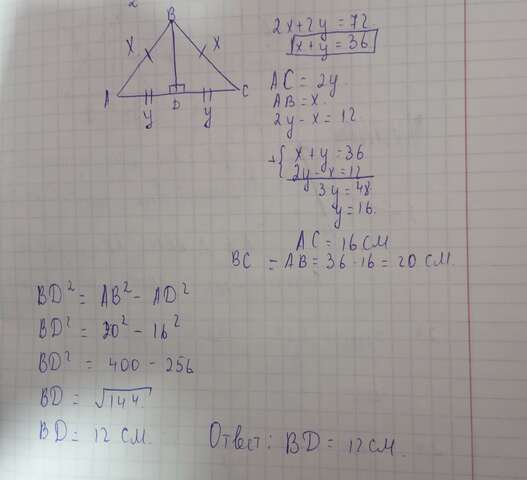 2
B
x
x
A
D
C
y
y
2x+2y = 72
x+y = 36
AC = 2y
AB = x.
2y - x = 12.
+{ x + y = 36
2y - x = 12
3y = 48
y = 16.
AC = 16 см
BC = AB = 36 - 16 = 20 см.
BD² = AB² - AD²
BD² = 20² - 16²
BD² = 400 - 256
BD = √144.
BD = 12 см.
Ответ: BD = 12 см.